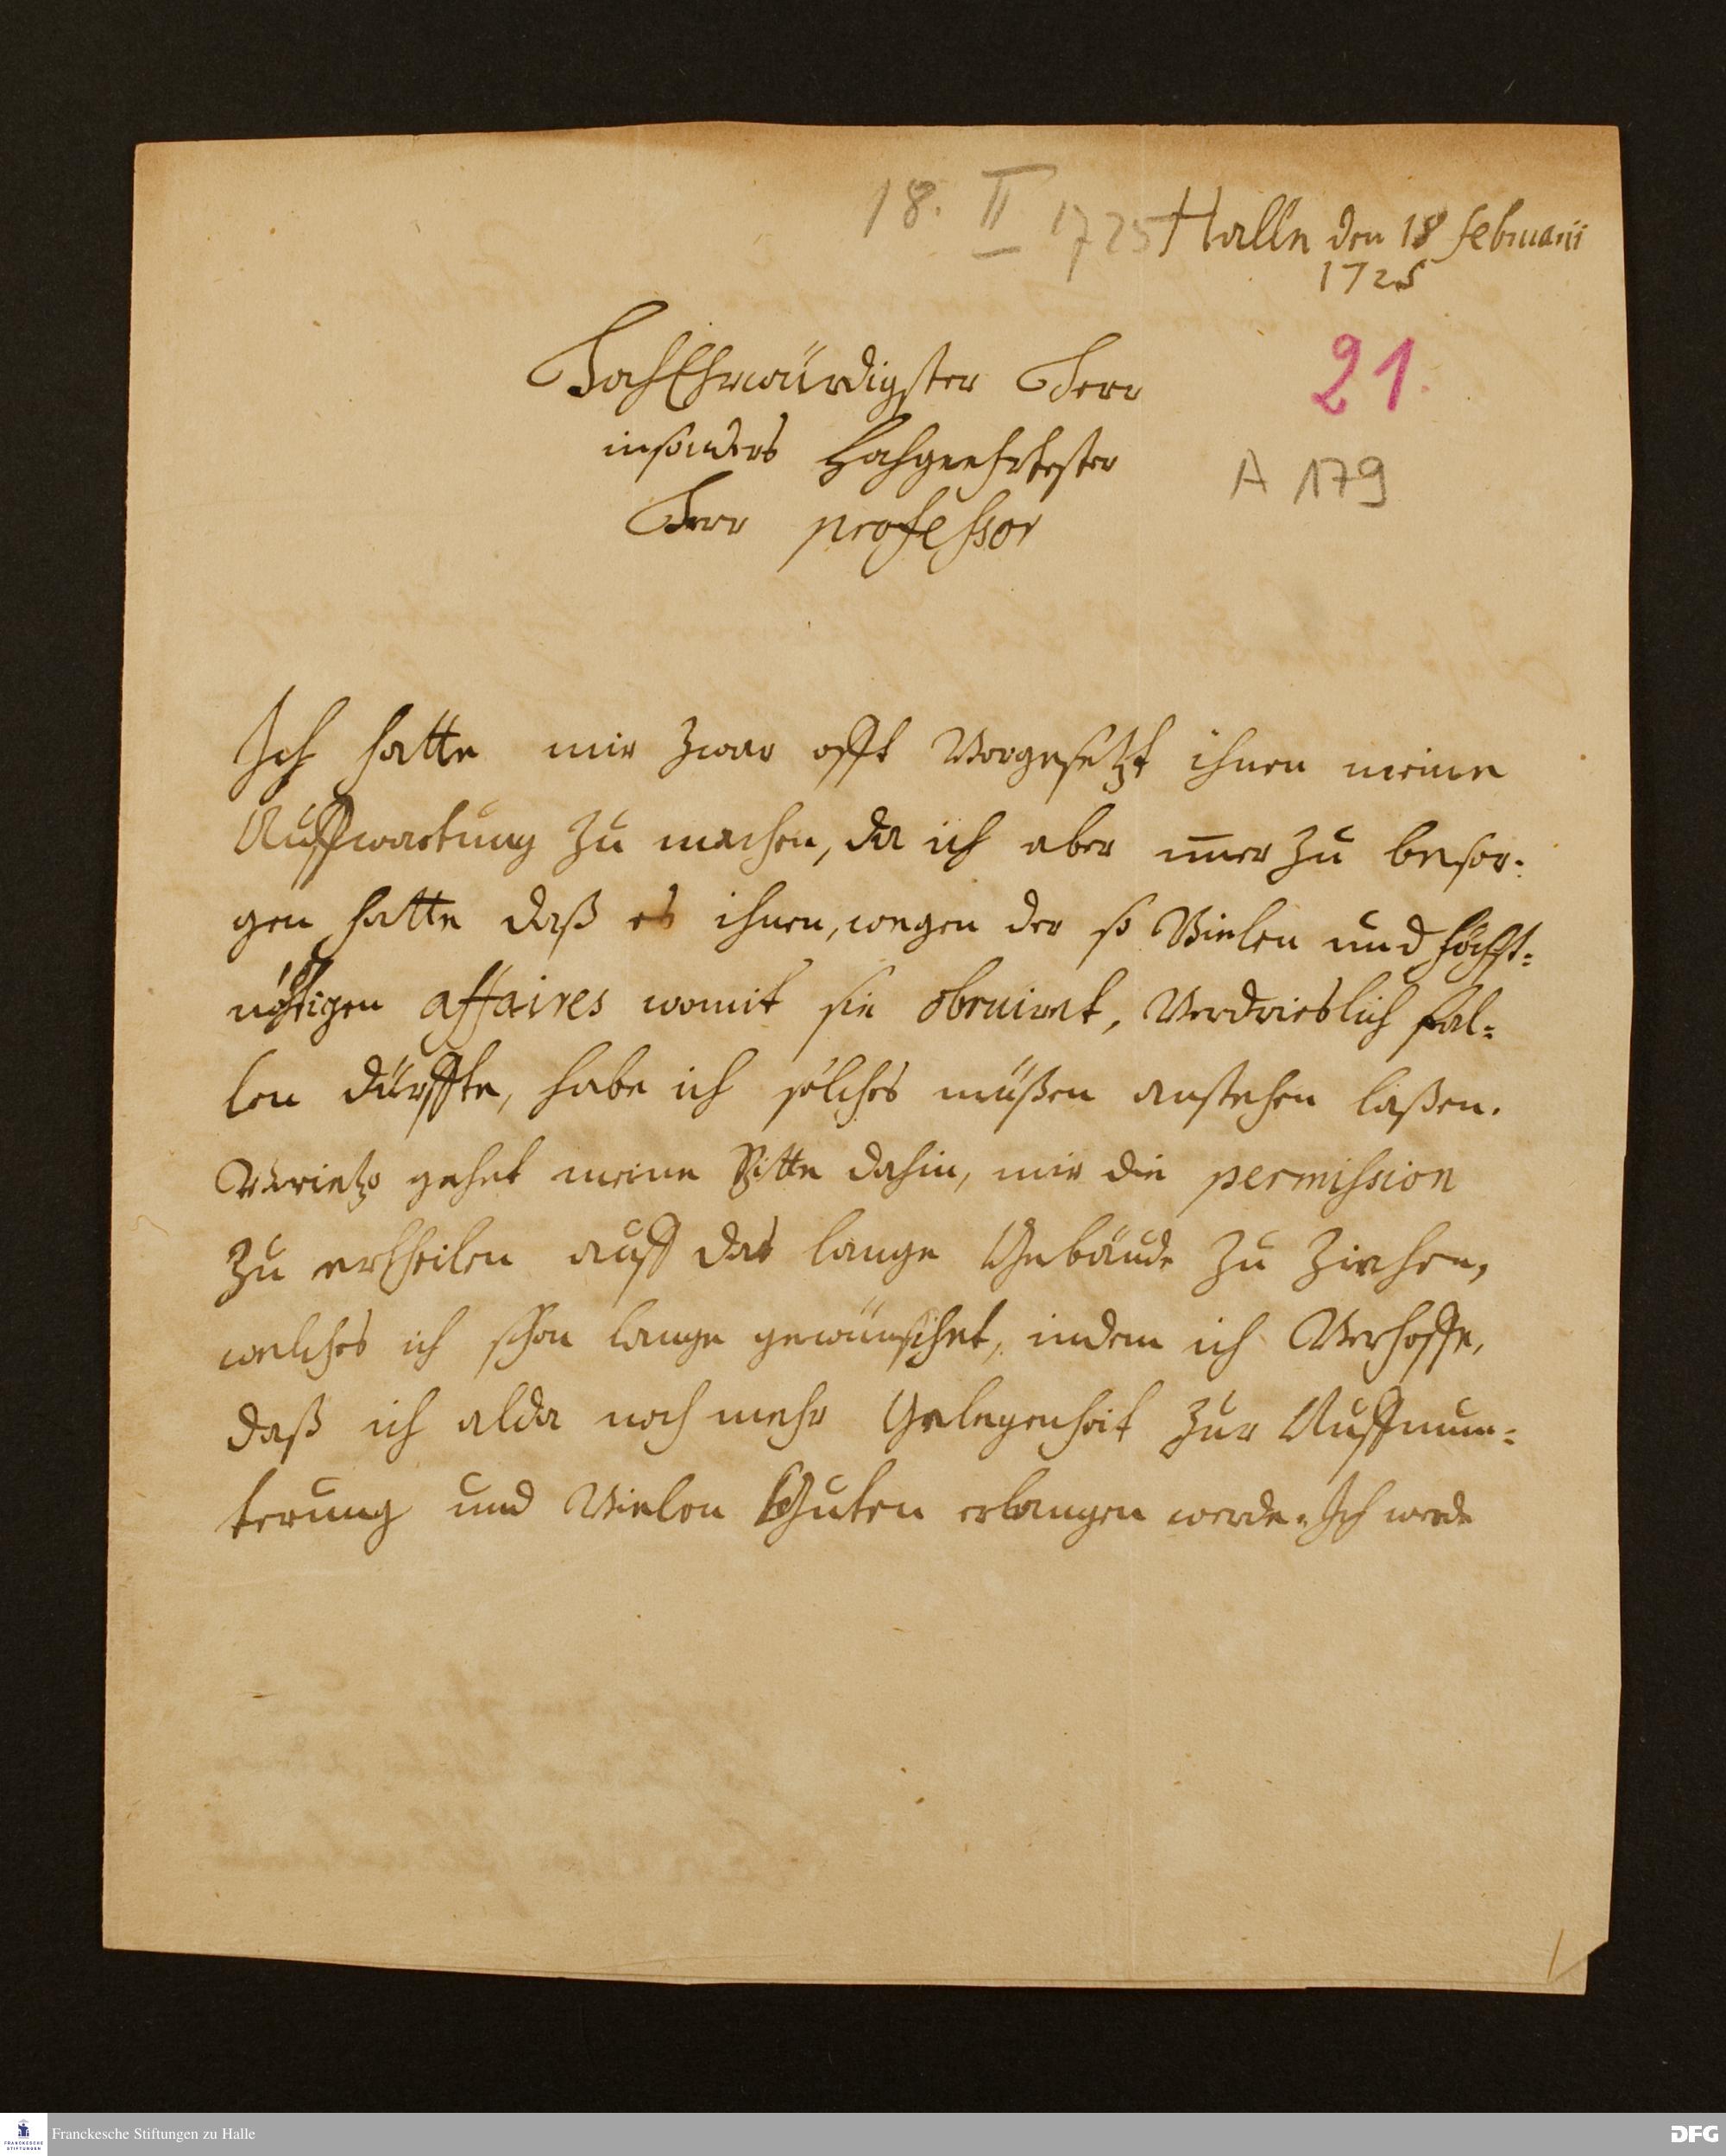 18. II 1725 Halle den 18 februarii
1725
HochEhrwürdigster Herr
21.
insonders Hochgeehrtester
A 179
Herr professor
Ich hatte mir zwar offt Vorgesetzt ihnen meine
Auffwartung zu machen, da ich aber im̅er zu besor-
gen hatte daß es ihnen, wegen der so Vielen und höchst-
nöhtigen affaires womit sie obruiret, Verdrieslich fal-
len dürffte, habe ich solches müßen anstehen laßen.
Vorietzo gehet meine Bitte dahin, mir die permission
zu ertheilen auff das lange Gebäude zu ziehen,
welches ich schon lange gewünschet, indem ich Verhoffe,
daß ich alda noch mehr Gelegenheit zur Auffmun-
terung und Vielen Guten erlangen werde. Ich werde
Franckesche Stiftungen zu Halle
FRANCKESCHE
STIFTUNGEN
DFG